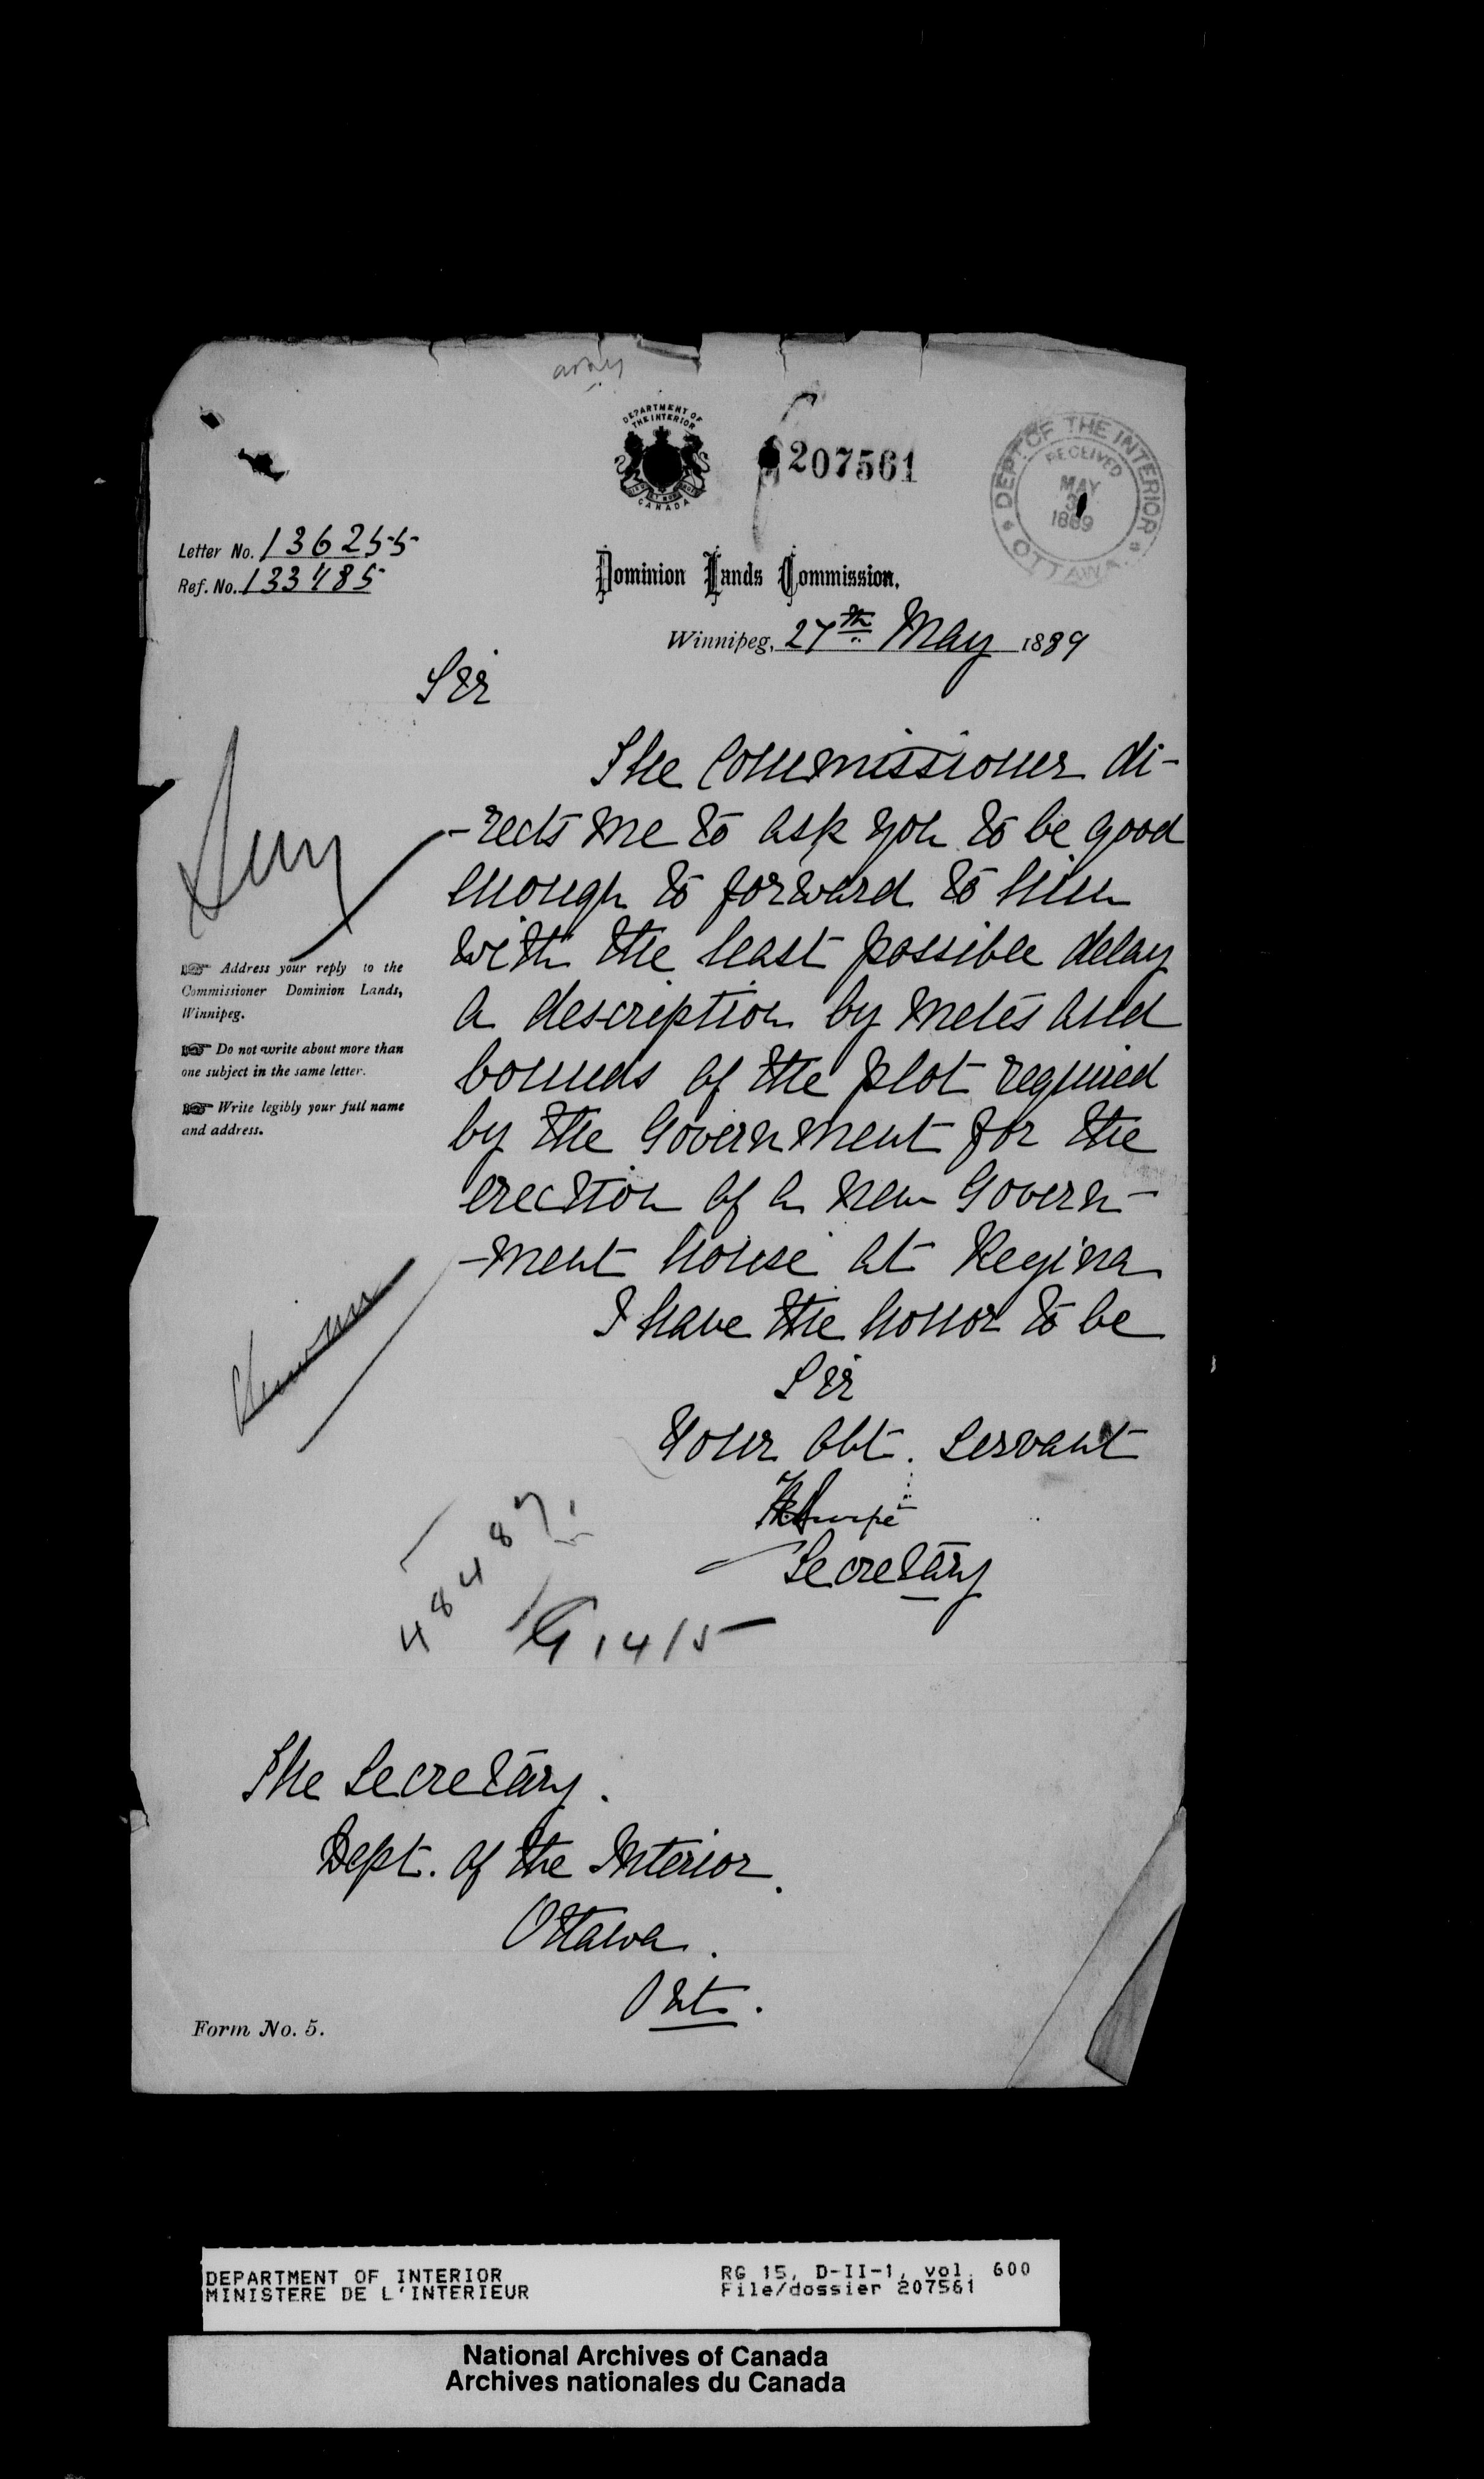 DEPARTMENT OF
THE INTERIOR
CANADA
207561
DEPT. OF THE INTERIOR
RECEIVED
MAY
1889
OTTAWA
Letter No. 136255
Ref. No. 133485
Dominion Lands Commission.
Winnipeg, 27th May 1889
Sir
The Commissioner di-
-rects me to ask you to be good
enough to forward to him
with the least possible delay
a description by metes and
bounds of the plot required
by the Government for the
erection of a new Govern-
-ment house at Regina
I have the honor to be
Sir
Your obt. servant
Secretary
Address your reply to the
Commissioner Dominion Lands,
Winnipeg.
Do not write about more than
one subject in the same letter.
Write legibly your full name
and address.
48487
14/5
The Secretary.
Dept. of the Interior.
Ottawa.
Ont.
Form No. 5.
DEPARTMENT OF INTERIOR
MINISTERE DE L'INTERIEUR
RG 15, D-II-1, vol. 600
File/dossier 207561
National Archives of Canada
Archives nationales du Canada